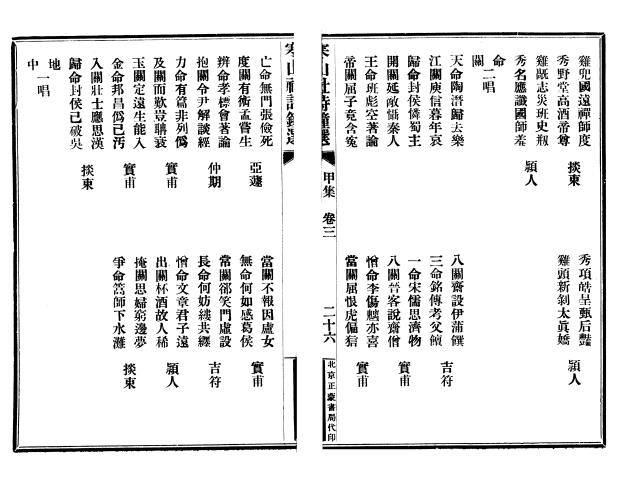 雞兜國遠禪師度
秀項皓呈甄后豔
秀野堂高酒帝尊 掞東
雞頭新剝太眞嬌 潁人
雞旣志災班史瓶
秀名應讖國師羞 潁人
命
關 二唱
天命陶潛歸去樂
八關齋設伊蒲饌
江關庾信暮年哀
三命銘傳考父饘 吉符
歸命封侯憐蜀主
一命宋儒思濟物
開關延敵懾秦人 實甫
八關晉客說齋僧 實甫
王命班彪空著論
憎命李傷魑亦喜
帝關屈子竟含寃
當關屈恨虎偏狺 實甫
寒山社詩鐘選 甲集 卷三 二十六
北京正蒙書局代印
寒山社詩鐘選
亡命無門張儉死
當關不報因盧女
度關有術孟嘗生 亞蘧
無命何如感葛侯 實甫
辨命孝標會著論
常關卻笑門虛設
抱關令尹解談經 仲期
長命何妨縷共纏 吉符
力命有篇非列僞
憎命文章君子遠
及關而歎豈聃衰 實甫
出關杯酒故人稀 潁人
玉關定遠生能入
掩關思婦窮邊夢
金命邦昌僞己汚 實甫
爭命篙師下水灘 掞東
入關壯士應思漢
歸命封侯己破吳 掞東
地
中 一唱